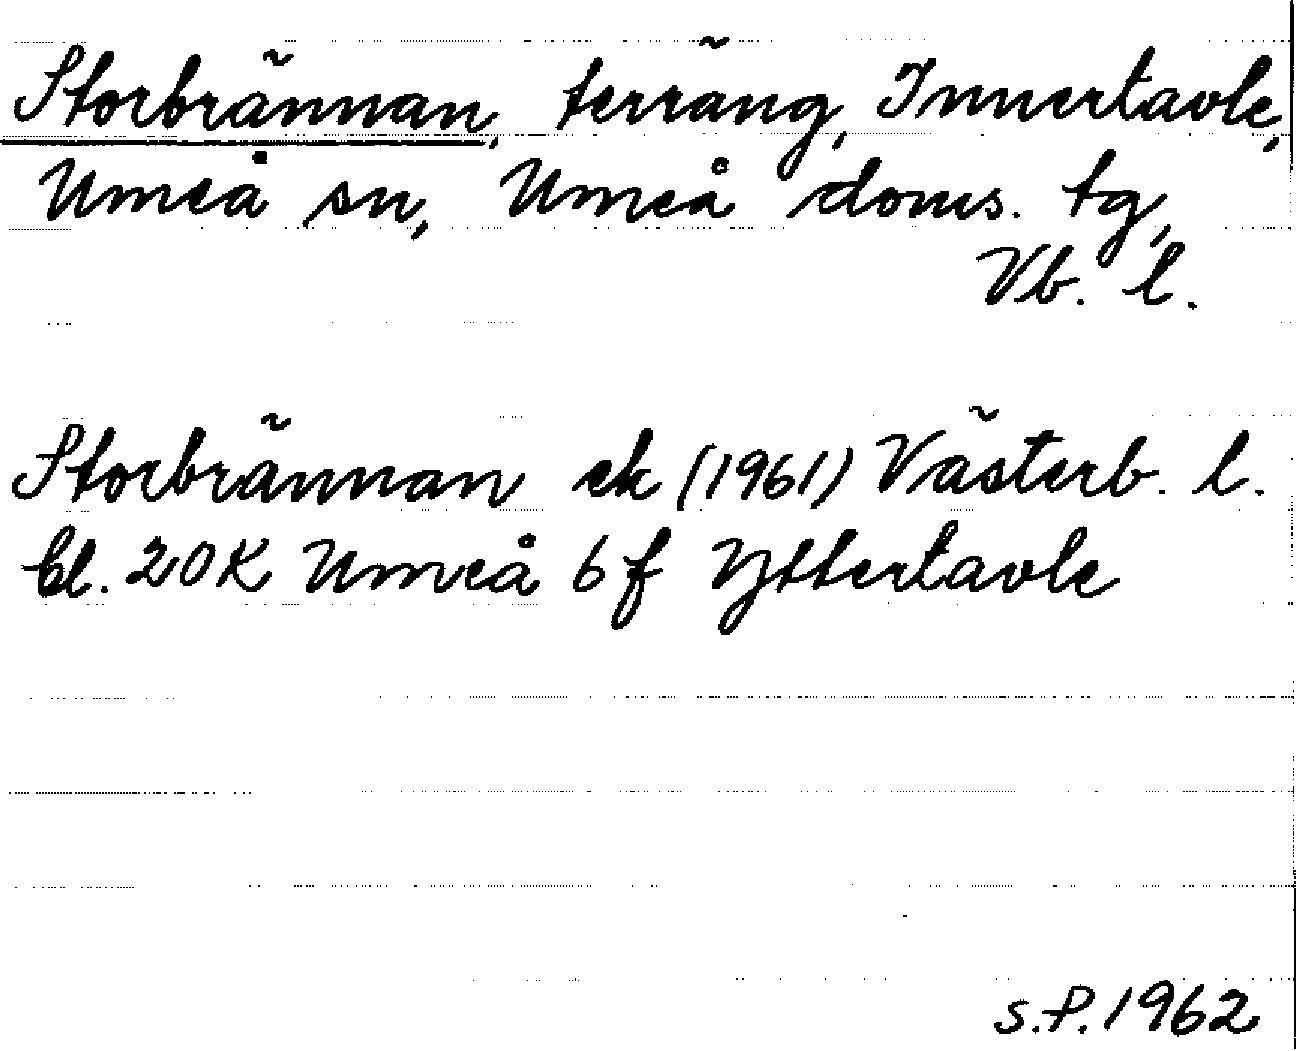 Storbrännan, terräng, Innertavle,
Umeå sn, Umeå doms. tg,
Vb. l.
Storbrännan ek (1961) Västerb. l.
bl. 20K Umeå 6f Yttertavle
S.P. 1962